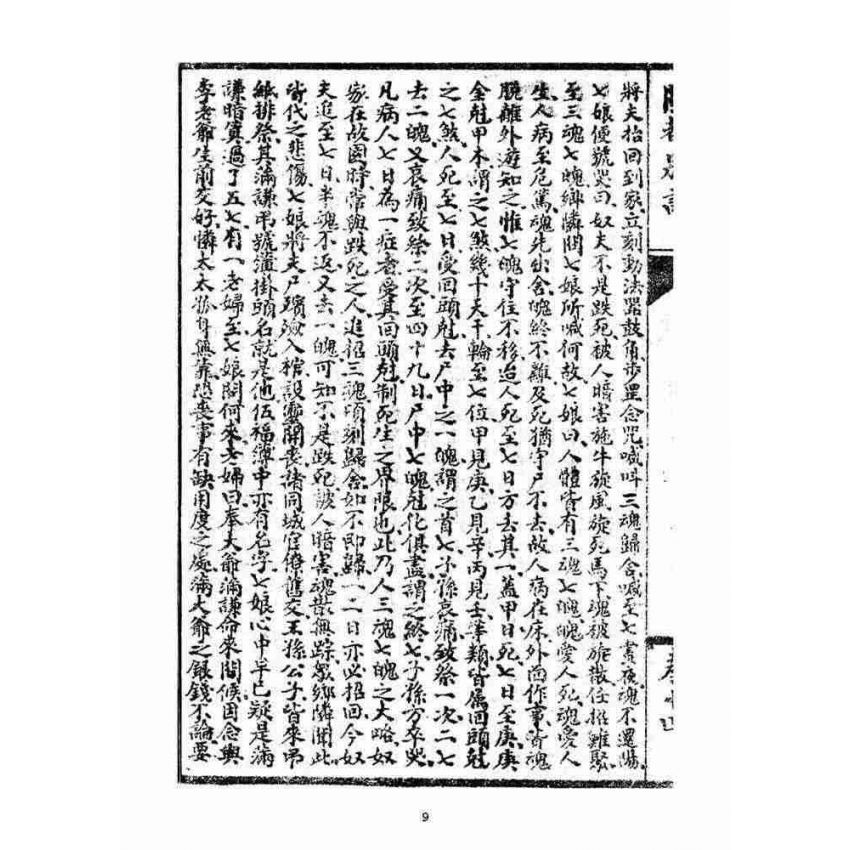 將夫抬回到家立刻動法器鼓角步罡念咒喊叫三魂歸舍喊至七晝夜魂不還陽
七娘便號哭曰奴夫不是跌死被人暗害施牛旋風旋死馬下魂被旋散任招難聚
至三魂七魄鄉隣問七娘所喊何故七娘曰人體皆有三魂七魄魄愛人死魂愛人
生人病至危篤魂先出舍魄終不離及死猶守尸不去故人病在床外面作事皆魂
脫離外遊知之惟七魄守住不移迨人死至七日方去其一蓋甲日死七日至庚庚
金尅甲木謂之七煞幾十天干輪至七位甲見庚乙見辛丙見壬等類皆屬回頭尅
之七煞人死至七日受回頭尅去尸中之一魄謂之首七子孫哀痛致祭一次二七
去二魄又哀痛致祭二次至四十九日尸中七魄尅化俱盡謂之終七子孫方卒哭
凡病人七日為一症者受其回頭尅制死生之界限也此乃人三魂七魄之大略奴
家在故國時常與跌死之人追招三魂頃刻歸舍如不即歸一二日亦必招回今奴
夫追至七日半魂不返又去一魄可知不是跌死被人暗害魂散無踪眾鄉隣聞此
皆代之悲傷七娘將夫尸殯殮入棺設靈開喪諸同城官僚舊交王孫公子皆來吊
紙排祭其滿謙吊號簿掛頭名就是他伍福簿中亦有名字七娘心中早已疑是滿
謙暗算過了五七有一老婦至七娘問何來老婦曰奉大爺滿謙命來問候因念與
李老爺生前交好憐太太孤身無靠恐喪事有缺用度之處滿大爺之銀錢不論要
9